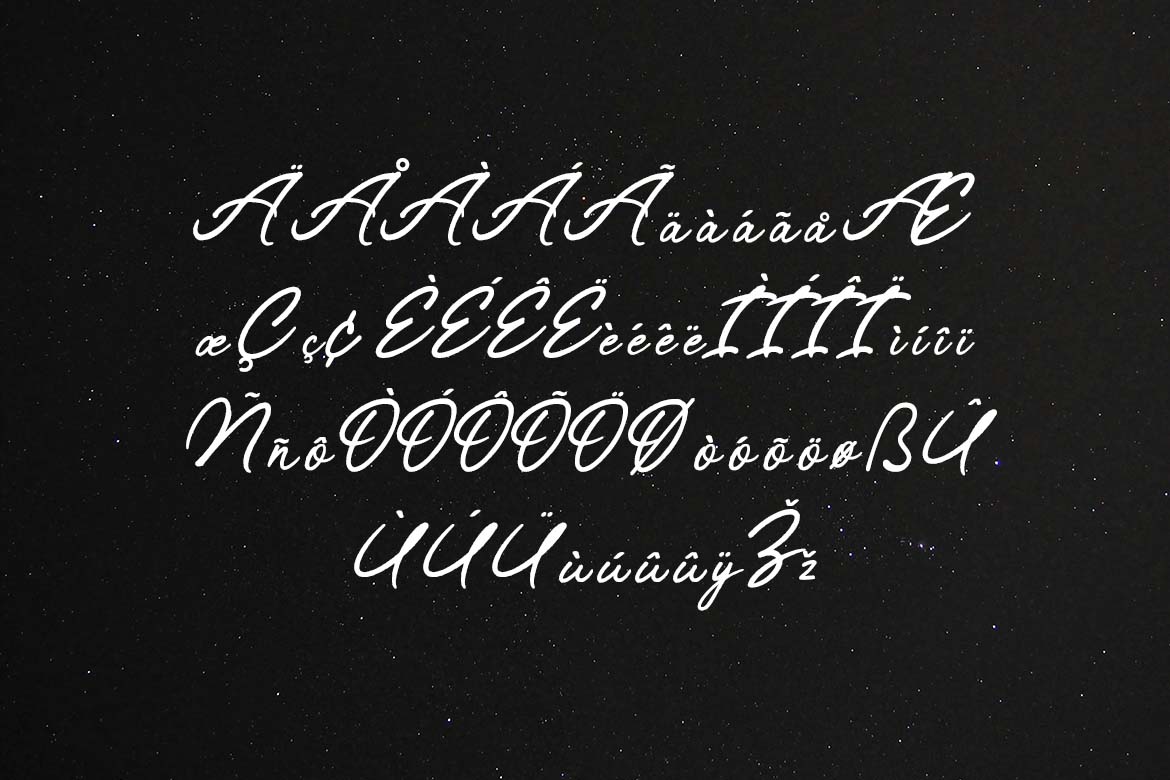 ÄÅÀÁÃäàáãåÆ
æÇç¢ÈÉÊËèéêëÌÍÎÏìíîï
ÑñôÒÓÔÕÖØòóõöøßÛ
ÙÚÜùúûûÿŽž